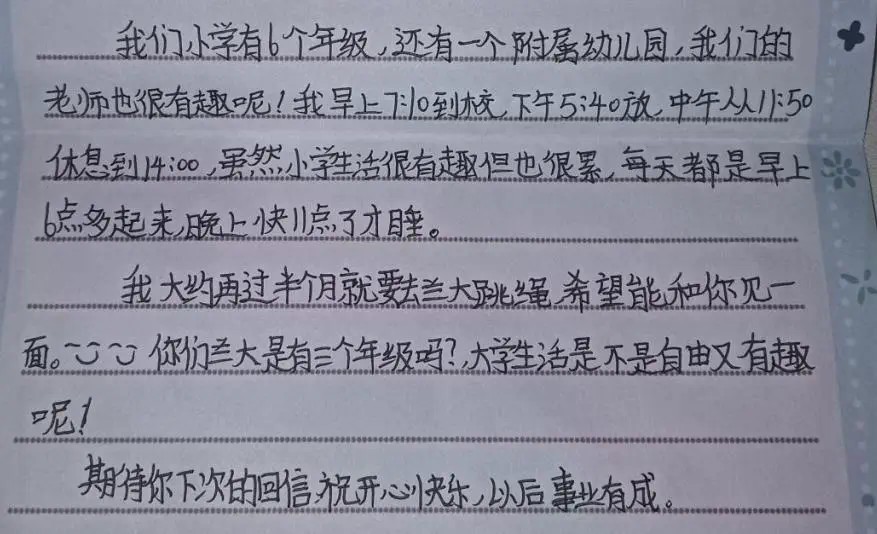 我们小学有6个年级,还有一个附属幼儿园,我们的
老师也很有趣呢!我早上7:10到校,下午5:40放,中午从11:50
休息到14:00,虽然小学生活很有趣但也很累,每天都是早上
6点多起来,晚上快11点了才睡。
我大约再过半个月就要去兰大跳绳,希望能和你见一
面。你们兰大是有三个年级吗?大学生活是不是自由又有趣
呢!
期待你下次的回信,祝开心快乐,以后事业有成。